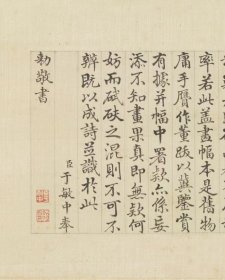 率若此蓋畫幅本是舊物
庸手贗作董跋以冀鑒賞
有據并幅中署款亦係妄
添不知畫果真即無欵何
妨而碔砆之混則不可不
辨既以成詩並識於此
臣于敏中奉
勅敬書